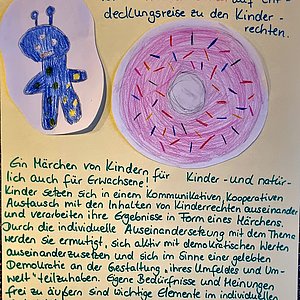 auf Ent-
deckungsreise zu den Kinder-
rechten.
Ein Märchen von Kindern für Kinder- und natür-
lich auch für Erwachsene!
Kinder setzen sich in einem Kommunikativen, Kooperativen
Austausch mit den Inhalten von Kinderrechten auseinander
und verarbeiten ihre Ergebnisse in Form eines Märchens.
Durch die individuelle Auseinandersetzung mit dem Thema
werden sie ermutigt, sich aktiv mit demokratischen Werten
auseinanderzusetzen und sich im Sinne einer gelebten
Demokratie an der Gestaltung, ihres Umfeldes und Um-
welt teilzuhaben. Eigene Bedürfnisse und Meinungen
frei zu äußern sind wichtige Elemente in individuellen